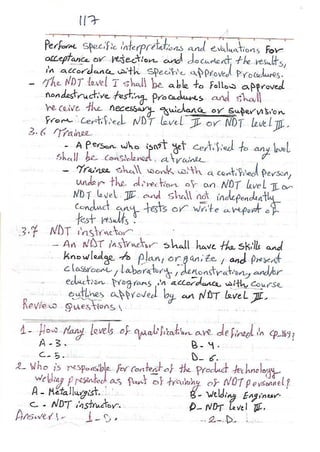 117
Perform specific interpretations and evaluations for
acceptance or rejection and document the results,
in accordance with specific approved Procedures.
- The NDT level I shall be able to follow approved
nondestructive testing procedures and shall
receive the necessary guidance or supervision
from certified NDT Level II or NDT level III.
3.6 Trainee
- A Person who isnot yet certified to any level
shall be considered a trainee
- Trainee shall work with a certified person,
under the direction of an NDT level II or
NDT level III and shall not independently
conduct any tests or write a report of
test results.
3.7 NDT instructor
- An NDT instructor shall have the skills and
knowledge to plan, organize, and present
classroom, laboratory, demonstration, and/or
eduction programs in accordance with course
outlines approved by an NDT level III.
Review Questions:
1- How Many levels of qualification are defined in CP-189?
A- 3. B- 4.
C- 5. D- 6.
2- Who is responsible for content of the product technology
welding presented as part of training of NDT personnel?
A- Metallurgist. B- Welding Engineer
C- NDT instructor. D- NDT level III.
Answers:- 1- C. 2- D.